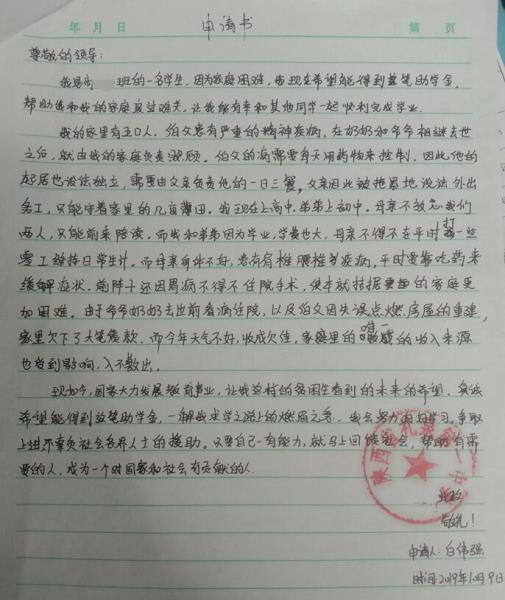 年 月 日
申请书
第 页
尊敬的领导:
我是高 班的一名学生,因为家庭困难,由现在希望能得到这笔助学金,
帮助我和我的家庭度过难关,让我能有幸和其他同学一起顺利完成学业.
我的家里有五口人,伯父患有严重的精神疾病,在奶奶和爷爷相继去世
之后,就由我的家庭负责照顾。伯父的病需要每天用药物来控制,因此他的
起居也没法独立,需要由父亲负责他的一日三餐。父亲因此被拖累地没法外出
务工,只能守着家里的几亩薄田。我现在上高中,弟弟上初中。母亲不放心我们
两人,只能前来陪读。而我和弟弟因为毕业,学费也大,母亲不得不在平时打一些
零工维持日常生计。而母亲身体不好,患有肩椎腰椎等疾病,平时要靠吃药来
缓解症状。前阵子还因胃病不得不住院手术,使本就拮据的家庭更
加困难。由于爷爷奶奶去世前看病住院,以及伯父因失误点燃房屋的重建,
家里欠下了大笔债款,而今年天气不好,收成欠佳,家庭里的唯一的收入来源
也受到影响,入不敷出。
现如今,国家大力发展教育事业,让我们农村的贫困生看到的未来的希望,我诚
希望能得到这笔助学金,一解我求学之路上的燃眉之急。我会努力的学习,争取
上进,不辜负社会各界人士的援助。只要自己一有能力,就马上回馈社会,帮助有需
要的人,成为一个对国家和社会有贡献的人.
此致
敬礼!
申请人:白伟强
时间2019年10月9日